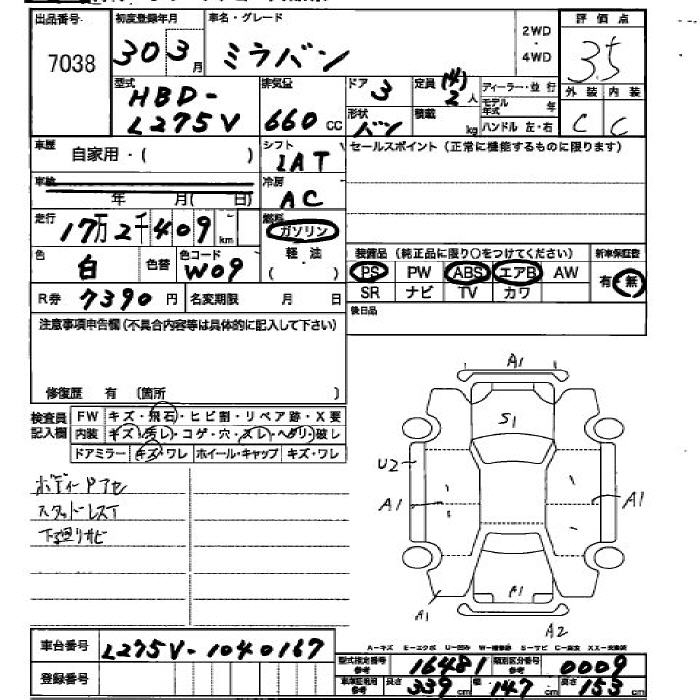 出品番号 初度登録年月 車名・グレード 2WD・4WD 評価点
7038 30 3月 ミラバン 3.5
型式 排気量 ドア 定員 ディーラー・並行 外装 内装
HBD-L275V 660cc 3 (4) 2人 モデル年式 年 C C
形状 積載
バン kg ハンドル 左・右
車歴 シフト セールスポイント (正常に機能するものに限ります)
自家用・( ) IAT
車検 冷房
年 月( 日) AC
走行 燃料
17万2千409km ガソリン
色 色替 色コード 軽油 装備品 (純正品に限り○をつけてください) 新車保証書
白 W09 ( ) PS PW ABS エアB AW 有・無
R券 7390円 名変期限 月 日 SR ナビ TV カワ
注意事項申告欄(不具合内容等は具体的に記入して下さい) 後日品
修復歴 有 〔箇所 〕
検査員記入欄 FW キズ・飛石・ヒビ割・リペア跡・X要
内装 キズ・汚レ・コゲ・穴・スレ・ヘタリ・破レ
ドアミラー キズ・ワレ ホイール・キャップ キズ・ワレ
ボディーPアセ
スタッドレスT
下廻りサビ
A1
S1
U2
A1 A1
A1
A1
A2
車台番号 L275V-1040167
A-キズ E-エクボ U-凹み W-補修跡 S-サビ C-腐食 XX-交換済
登録番号 型式指定番号 参考 16481 類別区分番号 参考 0009
車庫証明用 参考 長さ 339cm 幅 147cm 高さ 153cm